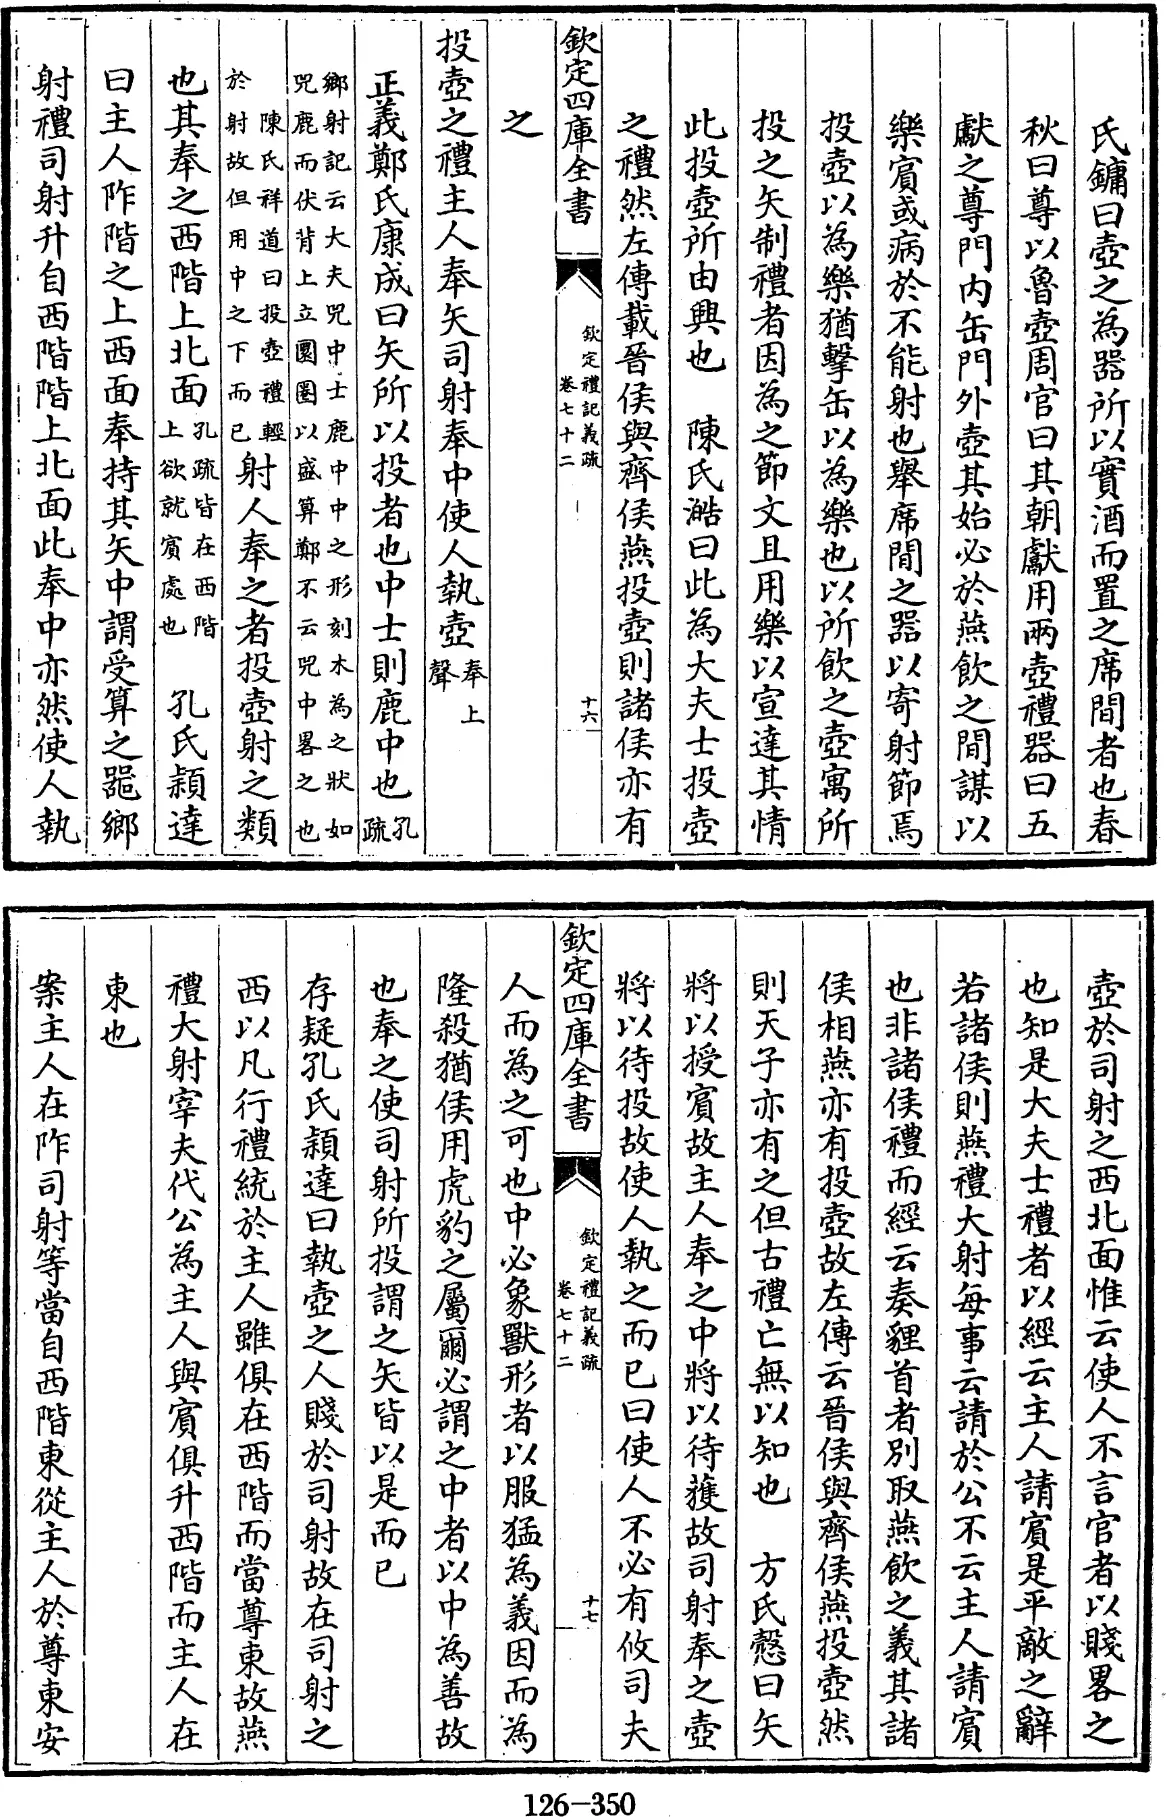 氏鏞曰壺之為器所以實酒而置之席間者也春
秋曰尊以魯壺周官曰其朝獻用兩壺禮器曰五
獻之尊門內缶門外壺其始必於燕飲之間謀以
樂賓或病於不能射也舉席間之器以寄射節焉
投壺以為樂猶擊缶以為樂也以所飲之壺寓所
投之矢制禮者因為之節文且用樂以宣達其情
此投壺所由興也　陳氏澔曰此為大夫士投壺
之禮然左傳載晉侯與齊侯燕投壺則諸侯亦有
之
欽定四庫全書
欽定禮記義疏
卷七十二
十六
投壺之禮主人奉矢司射奉中使人執壺奉上
聲
正義鄭氏康成曰矢所以投者也中士則鹿中也孔
疏
鄉射記云大夫兕中士鹿中中之形刻木為之狀如
兕鹿而伏背上立圜圈以盛算鄭不云兕中畧之也
陳氏祥道曰投壺禮輕
於射故但用中之下而已射人奉之者投壺射之類
也其奉之西階上北面孔疏皆在西階
上欲就賓處也　孔氏穎達
曰主人阼階之上西面奉持其矢中謂受算之器鄉
射禮司射升自西階階上北面此奉中亦然使人執
壺於司射之西北面惟云使人不言官者以賤畧之
也知是大夫士禮者以經云主人請賓是平敵之辭
若諸侯則燕禮大射每事云請於公不云主人請賓
也非諸侯禮而經云奏貍首者別取燕飲之義其諸
侯相燕亦有投壺故左傳云晉侯與齊侯燕投壺然
則天子亦有之但古禮亡無以知也　方氏慤曰矢
將以授賓故主人奉之中將以待獲故司射奉之壺
將以待投故使人執之而已曰使人不必有攸司夫
欽定四庫全書
欽定禮記義疏
卷七十二
十七
人而為之可也中必象獸形者以服猛為義因而為
隆殺猶侯用虎豹之屬爾必謂之中者以中為善故
也奉之使司射所投謂之矢皆以是而已
存疑孔氏穎達曰執壺之人賤於司射故在司射之
西以凡行禮統於主人雖俱在西階而當尊東故燕
禮大射宰夫代公為主人與賓俱升西階而主人在
東也
案主人在阼司射等當自西階東從主人於尊東安
126-350